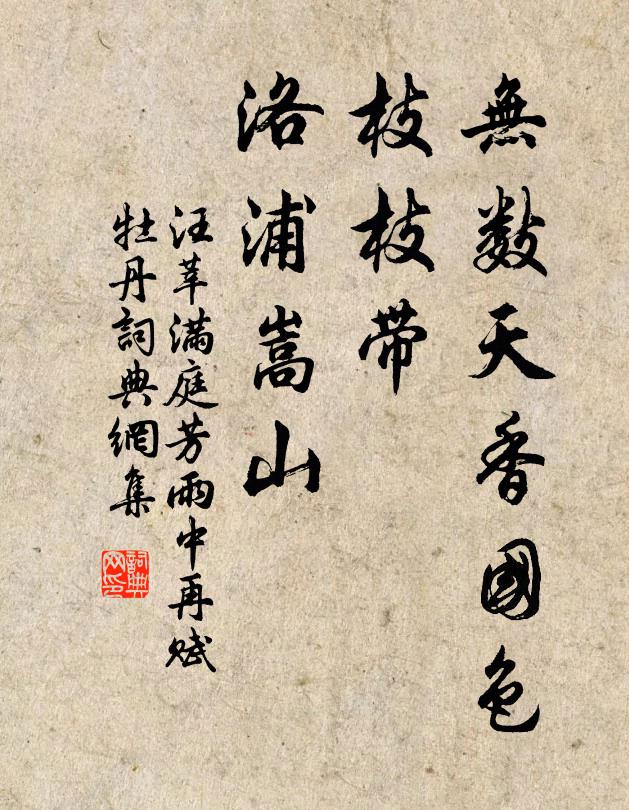 無数天香國色
枝枝帯
洛浦嵩山
汪莘满庭芳雨中再赋
牡丹詞典網集
詞典
网印